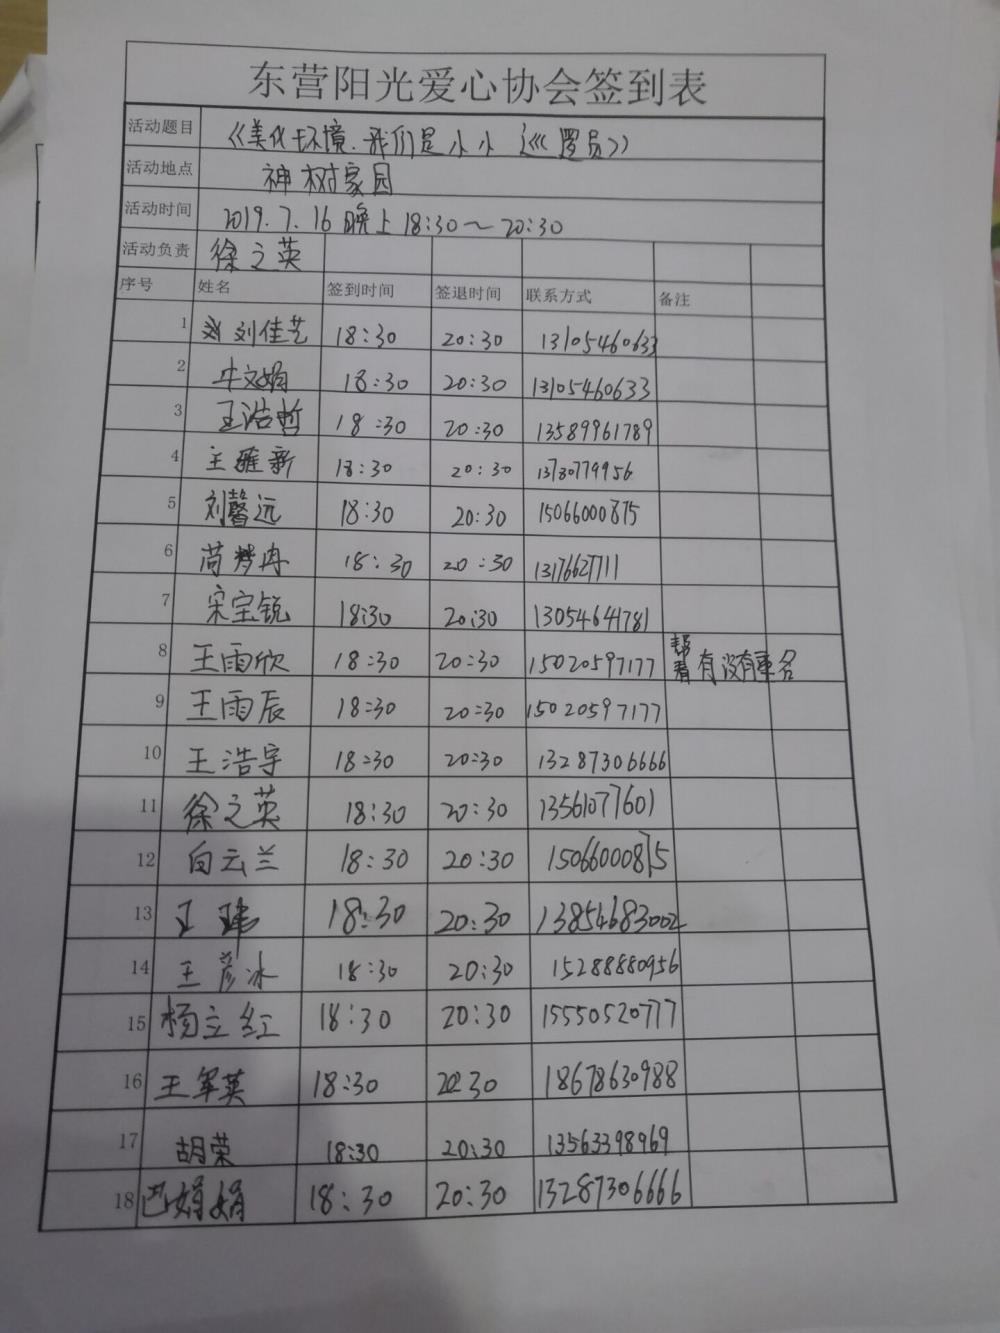 东营阳光爱心协会签到表
活动题目 《美化环境.我们是小小巡逻员》
活动地点 神树家园
活动时间 2019.7.16 晚上 18:30~20:30
活动负责 徐之英
序号 姓名 签到时间 签退时间 联系方式 备注
1 刘佳艺 18:30 20:30 13105460633
2 牛文娟 18:30 20:30 13105460633
3 王浩哲 18:30 20:30 13589961789
4 王雅新 18:30 20:30 13780779956
5 刘馨远 18:30 20:30 15066000875
6 苘梦冉 18:30 20:30 13176627711
7 宋宝锐 18:30 20:30 13054641781
8 王雨欣 18:30 20:30 15020597177 帮看有没有重名
9 王雨辰 18:30 20:30 15020597177
10 王浩宇 18:30 20:30 13287306666
11 徐之英 18:30 20:30 13561077601
12 白云兰 18:30 20:30 15066000875
13 王玮 18:30 20:30 13854683002
14 王彦冰 18:30 20:30 15288880956
15 杨立红 18:30 20:30 15550520777
16 王军英 18:30 20:30 18678630988
17 胡荣 18:30 20:30 13563398969
18 巴娟娟 18:30 20:30 13287306666